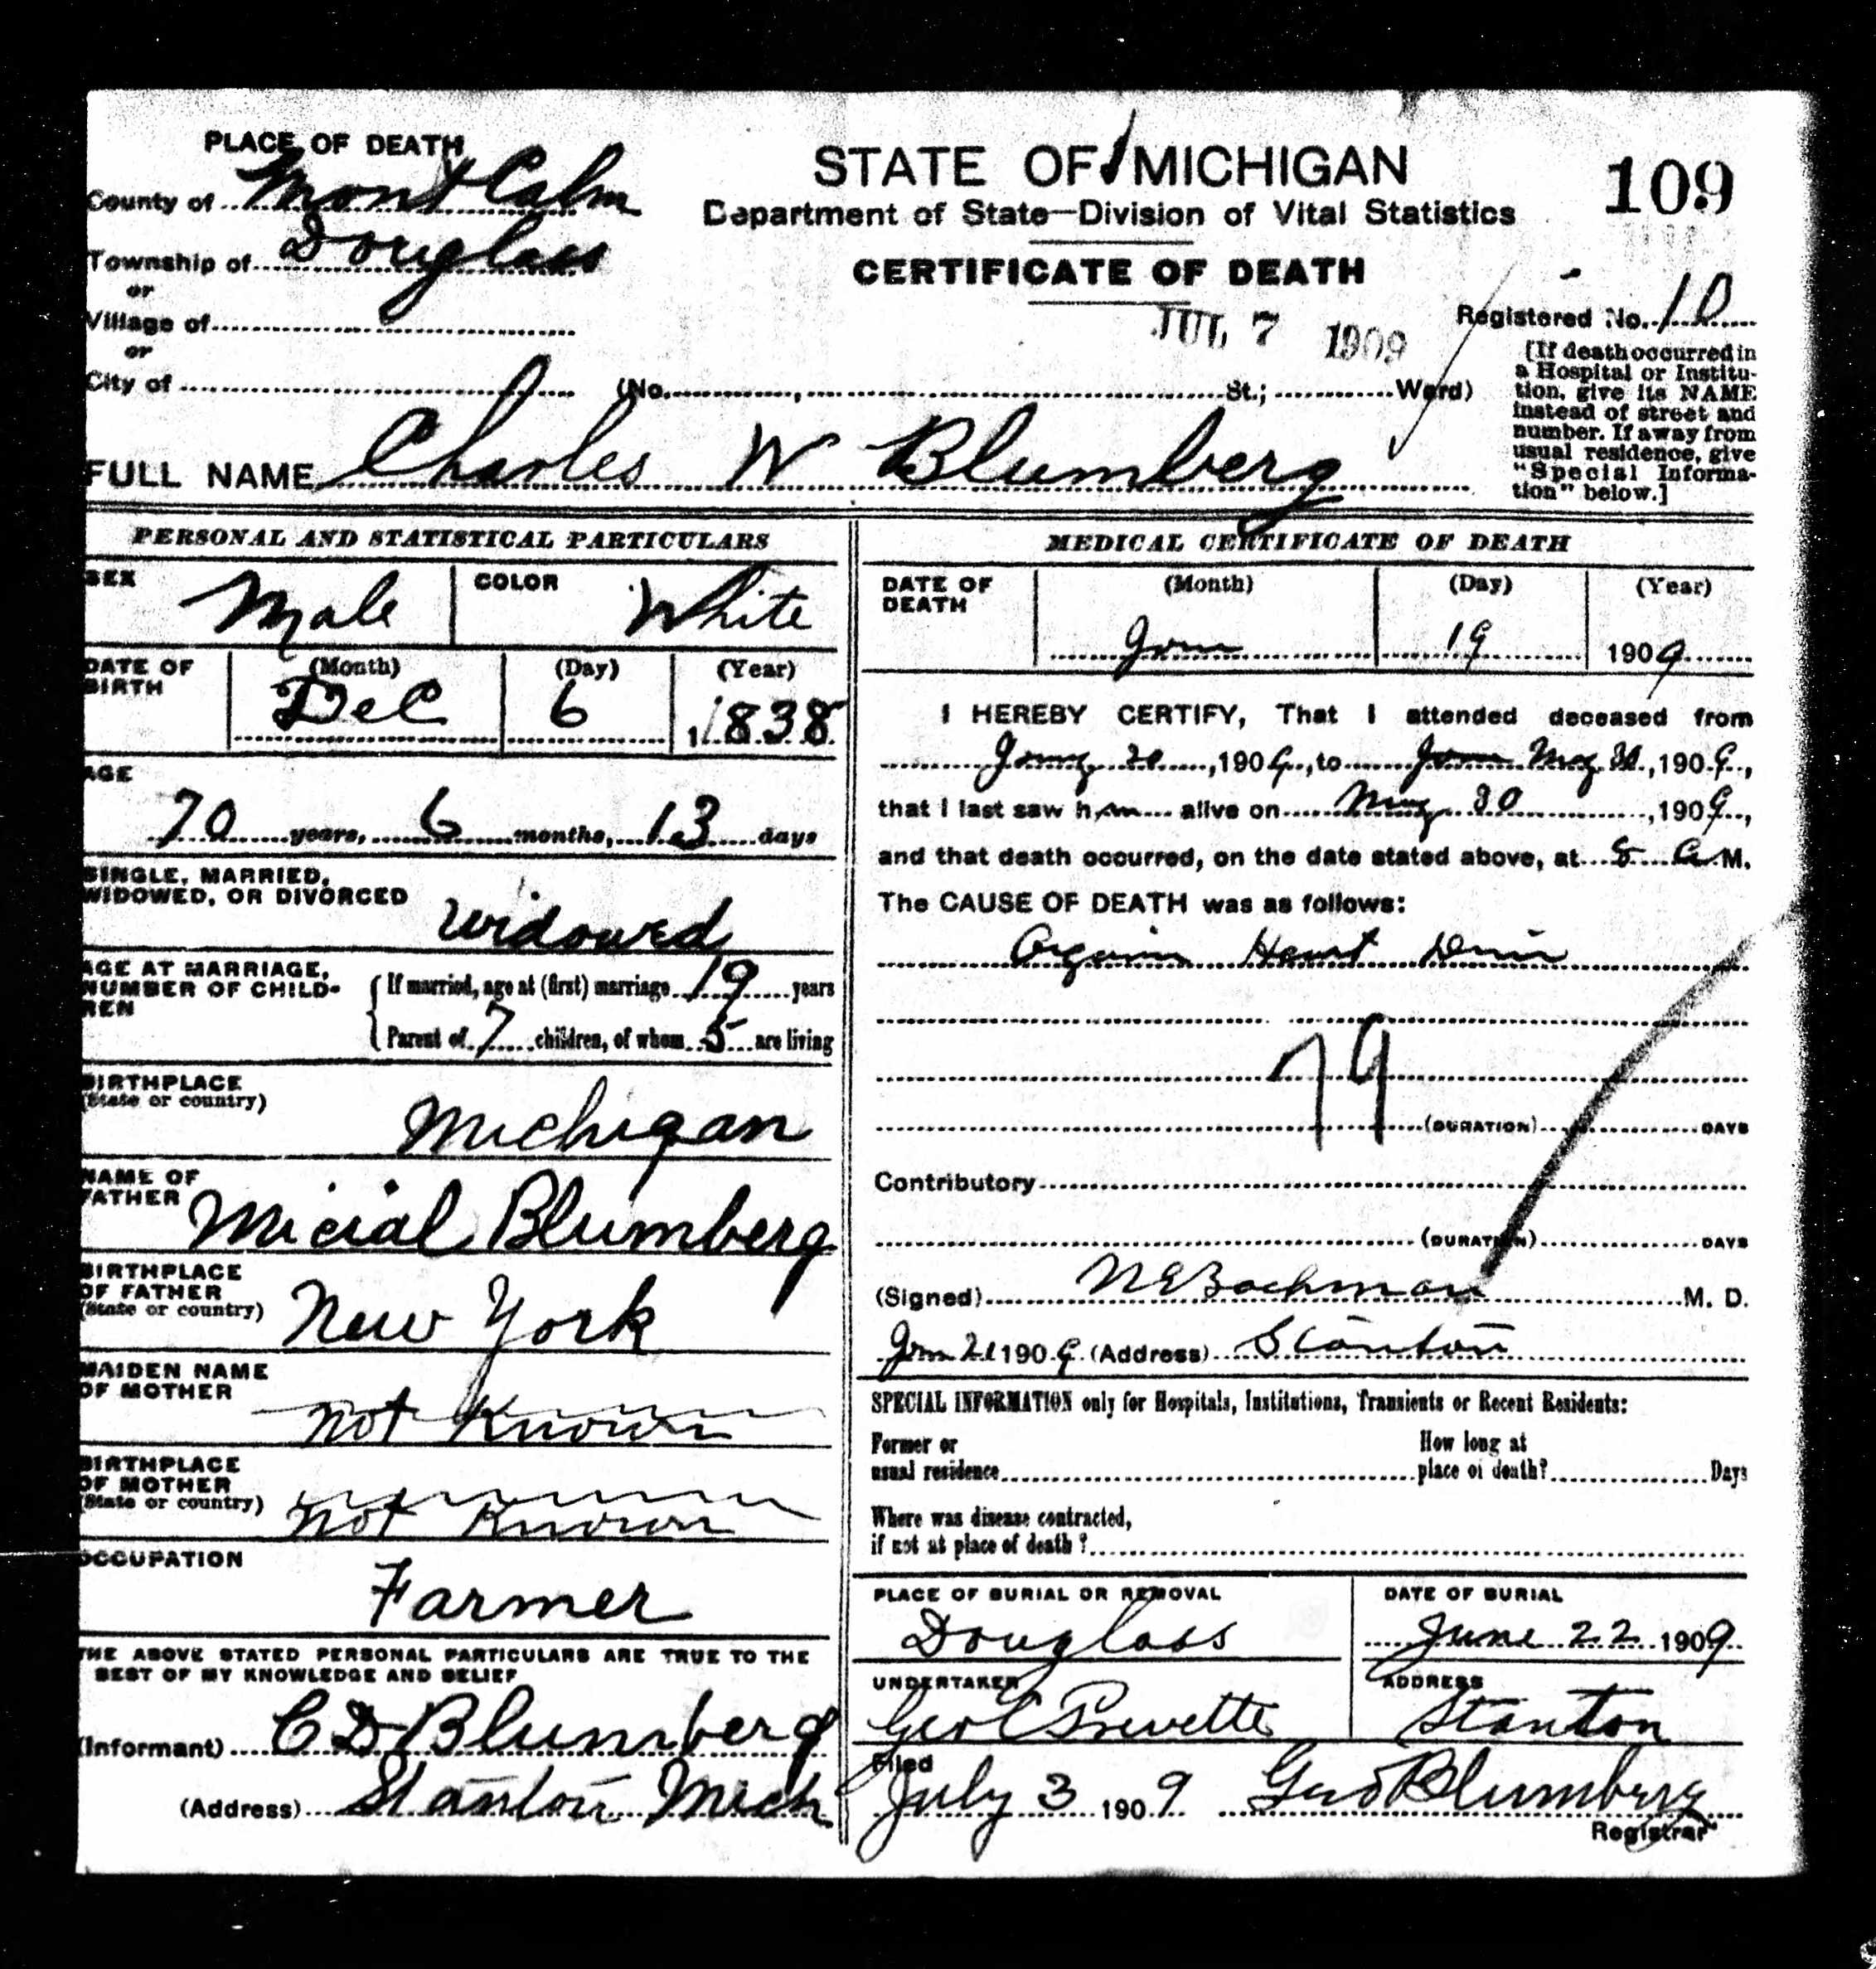 PLACE OF DEATH
County of Mont Calm
Township of Douglass
or
Village of
or
City of
STATE OF MICHIGAN
Department of State—Division of Vital Statistics
CERTIFICATE OF DEATH
109
JUL 7 1909
Registered No. 10
(No. , St.; Ward)
[If death occurred in
a Hospital or Institu-
tion, give its NAME
instead of street and
number. If away from
usual residence, give
"Special Informa-
tion" below.]
FULL NAME Charles W Blumberg
PERSONAL AND STATISTICAL PARTICULARS
SEX Male COLOR White
DATE OF BIRTH (Month) (Day) (Year)
Dec 6 1838
AGE
70 years, 6 months, 13 days
SINGLE, MARRIED,
WIDOWED, OR DIVORCED widowed
AGE AT MARRIAGE,
NUMBER OF CHILD-
REN
If married, age at (first) marriage 19 years
Parent of 7 children, of whom 5 are living
BIRTHPLACE
(State or country) Michigan
NAME OF
FATHER Micial Blumberg
BIRTHPLACE
OF FATHER
(State or country) New York
MAIDEN NAME
OF MOTHER not Known
BIRTHPLACE
OF MOTHER
(State or country) not Known
OCCUPATION
Farmer
THE ABOVE STATED PERSONAL PARTICULARS ARE TRUE TO THE
BEST OF MY KNOWLEDGE AND BELIEF
(Informant) C D Blumberg
(Address) Stanton Mich
MEDICAL CERTIFICATE OF DEATH
DATE OF DEATH (Month) (Day) (Year)
19 1909
I HEREBY CERTIFY, That I attended deceased from
1909, to 30, 1909,
that I last saw him alive on 30, 1909,
and that death occurred, on the date stated above, at 8 A M.
The CAUSE OF DEATH was as follows:
Heart
79
(DURATION) DAYS
Contributory
(DURATION) DAYS
(Signed) N E Bachman M. D.
21 1909 (Address) Stanton
SPECIAL INFORMATION only for Hospitals, Institutions, Transients or Recent Residents:
Former or
usual residence
How long at
place of death? Days
Where was disease contracted,
if not at place of death?
PLACE OF BURIAL OR REMOVAL
Douglass
DATE OF BURIAL
June 22 1909
UNDERTAKER
Geo C Prevette
ADDRESS
Stanton
Filed
July 3 1909 Geo Blumberg
Registrar